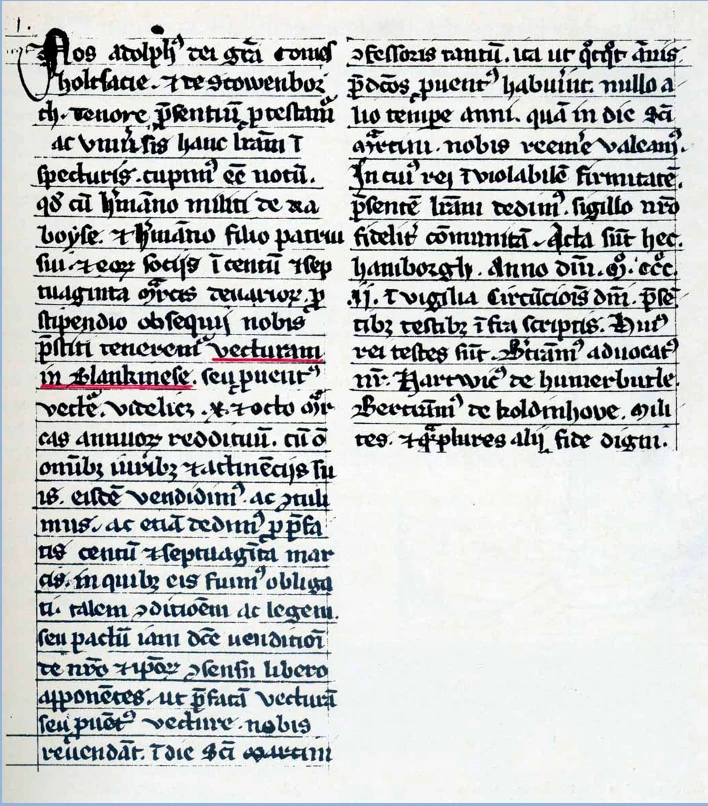 1.
Nos adolph' dei grā Comes
holtsacie. ⁊ de Scowenbor
ch. Tenore p̄sentiū ptestam̄
ac vniu̾sis hanc lrām ī
specturis. cupim' eē notū.
qd̓ cū h̓māno militi de xa
boyse. ⁊ h̓māno filio patrui
sui. ⁊ eoꝝ socijs ī centū ⁊ sep
tuaginta mr̄cis denarioꝝ. ꝓ
stipendio obsequij nobis
p̄stiti tenerem' vecturam
in Blankinese. seu ꝓuent'
vecte. videlicꝫ. x. ⁊ octo mr̄
cas annuoꝝ reddituū. cū ō
omībꝫ iuribꝫ ⁊ attinēcijs su
is. eisdē vendidim'. ac ꝯtuli
mus. ac etiā dedim' ꝓ p̄fa
tis centū ⁊ septuagīta mar
cis. in quibꝫ eis fuim' obliga
ti. talem ꝯditioēm ac legem.
seu pactū iam dc̄e uenditiōi
de nr̄o ⁊ ip̄oꝝ ꝯsensu libero
apponētes. ut p̄fatā vecturā
seu ꝓuēt' vecture. nobis
reuendāt. ī die Sc̄i martini
ꝯfessoris tantū. ita ut q̊tq̊t ān̄is
p̄dc̄os ꝓuent' habuīt. nullo a
lio tempe anni. quā in die Sc̄i
mr̄tini. nobis reem̄e valeam'.
In cui' rei īviolabilē firmitatē.
p̄sentē lrām dedim'. sigillo nr̄o
fidelit̓ cōmunitā. Acta sūt hec.
hamborgh. Anno dn̄i. M̊. cc̊c.
.ij. ī vigilia Circūcisiōis dn̄i. p̄sē
tibꝫ testibꝫ īfra scriptis. Hui'
rei testes sūt. Btrām' aduocat'
nr̄. Hartwic' de humerbutle.
Bertrām' de koldinhove. Mili
tes. ⁊ q̄plures alij fide digni.